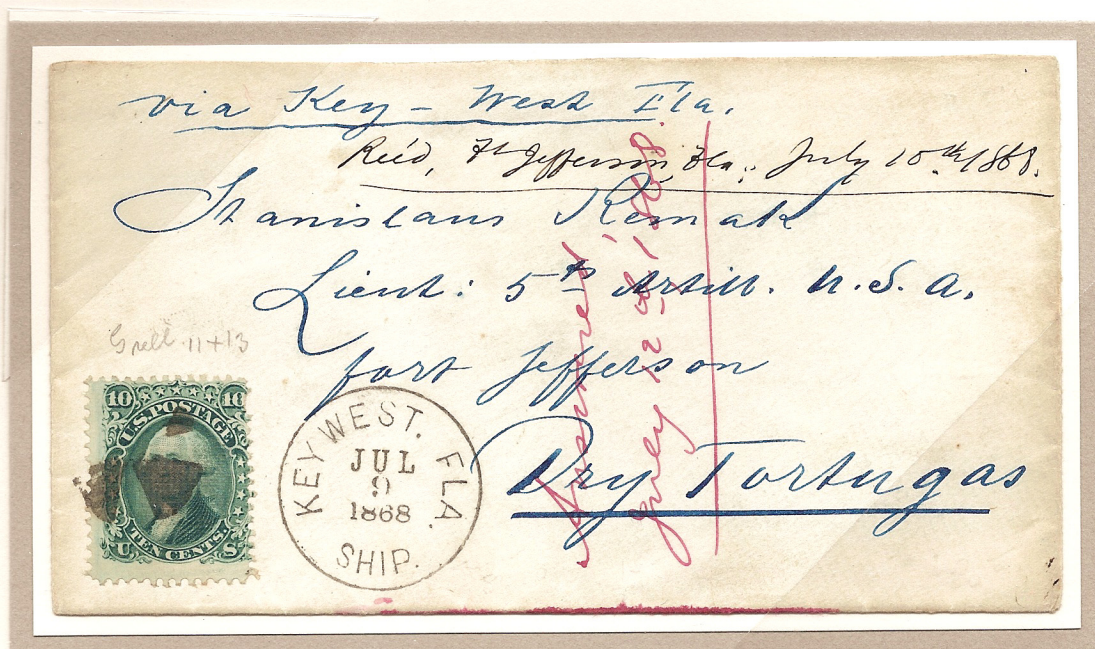 via Key - West Fla.
Rec'd, Ft Jefferson, Fla., July 10th, 1868.
Stanislaus Remak
Lieut: 5th Artill. U.S.A.
fort Jefferson
Dry Tortugas
Answered
July 12th 1868.
Grill 11+13
10 10
U.S. POSTAGE
TEN CENTS
U S
KEY WEST. FLA.
JUL
9
1868
SHIP.